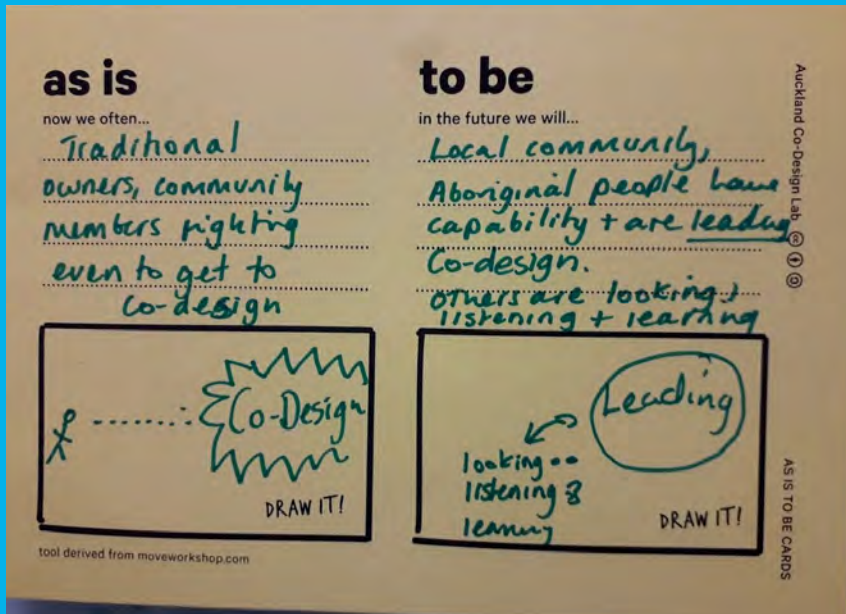 as is
now we often...
Traditional
owners, community
members fighting
even to get to
Co-design
Co-Design
DRAW IT!
tool derived from moveworkshop.com
to be
in the future we will...
Local community,
Aboriginal people have
capability + are leading
Co-design.
others are looking +
listening + learning
Leading
looking
listening
learning
DRAW IT!
Auckland Co-Design Lab
AS IS TO BE CARDS